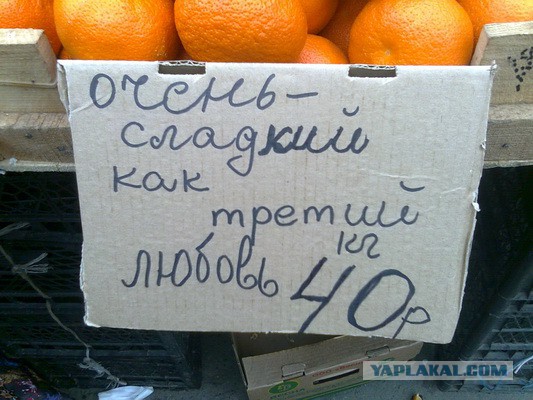 очень-
сладкий
как
третий
любовь
кг
40р
YAPLAKAL.COM